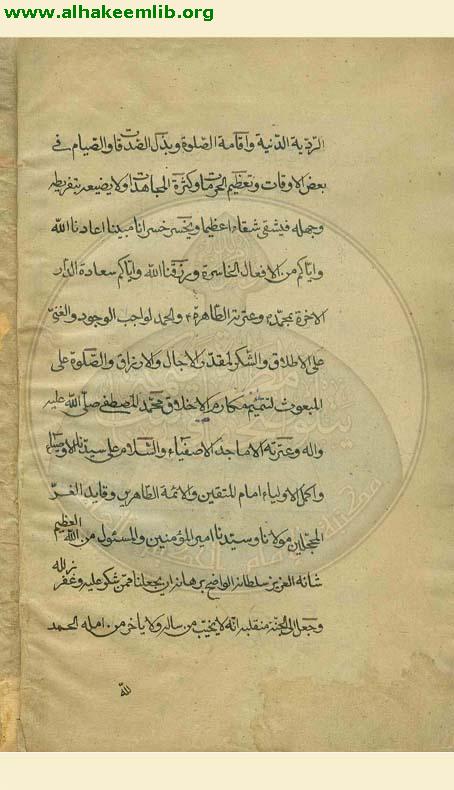 www.alhakeemlib.org
الرّديّة الدّنية واقامة الصّلوة وبذل الصّدقات والصّيام في
بعض الاوقات وتعظيم الحرمات وكثرة المجاهدات ولا يضيعه بتفريطه
وجهله فيشقى شقاء اعظيما ويخسر خسرانا مبينا اعاذنا الله
وايّاكم من الافعال الخاسرة ورزقنا الله وايّاكم سعادة الدّار
الاخرة بمحمّد وعترته الطّاهرة والحمد لواجب الوجود والغنىّ
على الاطلاق والشّكر لمقدّر الاجال والارزاق والصّلوة على
المبعوث لتتميم مكارم الاخلاق محمّد المصطفى صلّى الله عليه
واله وعترته الاماجد الاصفياء والسّلام على سيّد الاوصياء
واكمل الاولياء امام المتقين والائمة الطّاهرين وقايد الغرّ
المحجّلين مولانا وسيّدنا امير المؤمنين والمسئول من الله العظيم
شانه العزيز سلطانه الواضح برهانه ان يجعلنا ممّن شكر عليه وغفر زلله
وجعل الى الجنّة منقلبه انّه لا يخيّب من ساله ولا ياخر من امله الحمد
لله